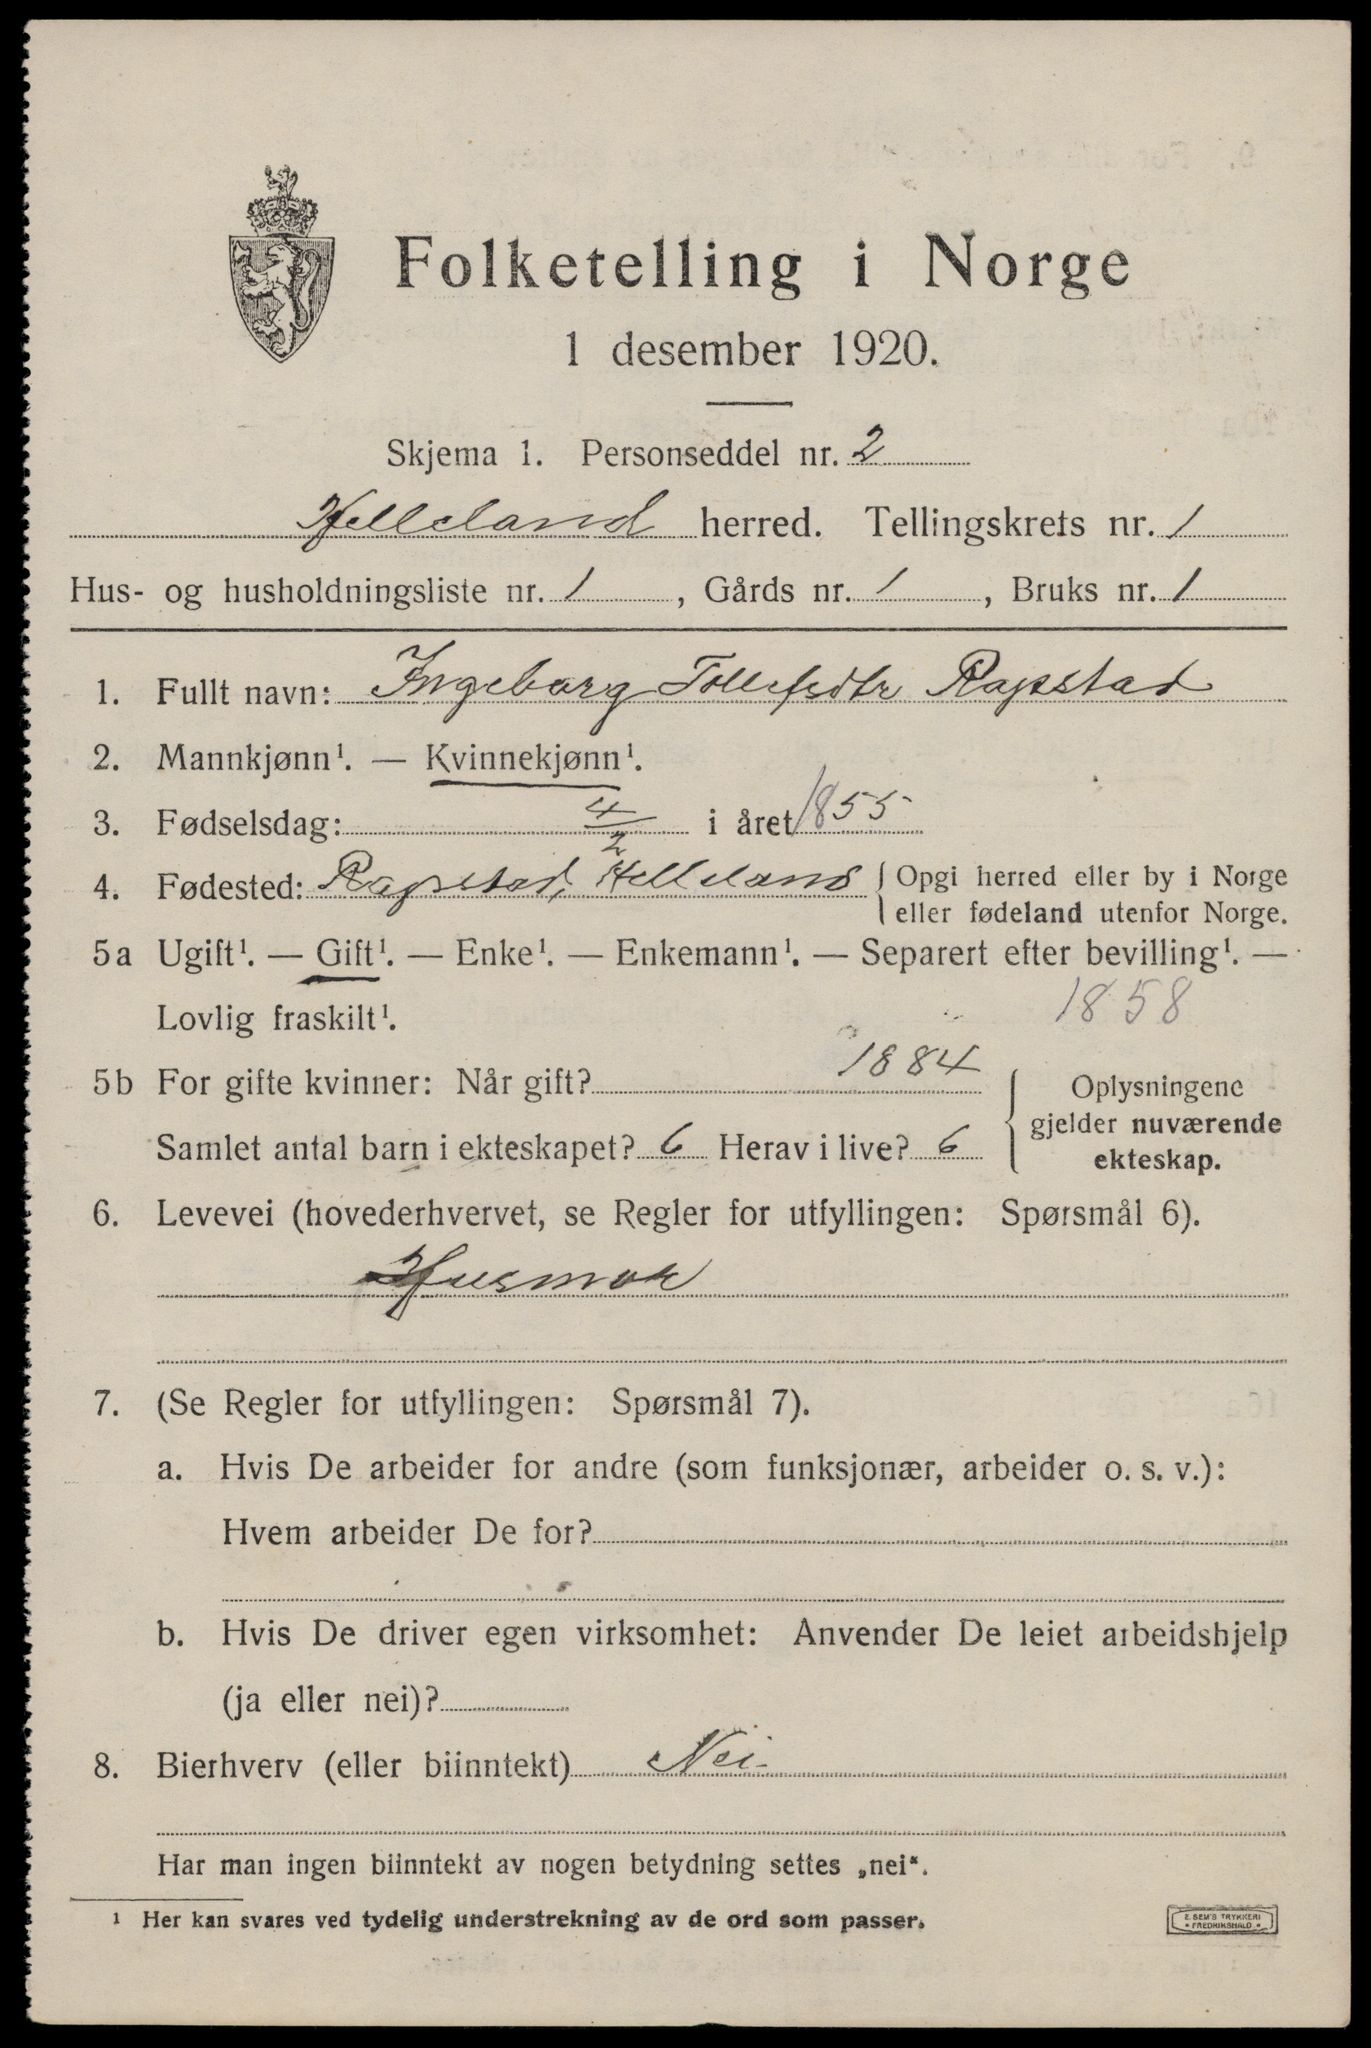 Folketelling i Norge
1 desember 1920.
Skjema 1. Personseddel nr. 2
Helleland herred. Tellingskrets nr. 1
Hus- og husholdningsliste nr. 1, Gårds nr. 1, Bruks nr. 1
1. Fullt navn: Ingeborg Tollefsdtr Rapstad
2. Mannkjønn¹. — Kvinnekjønn¹.
3. Fødselsdag: 4/2 i året 1855
4. Fødested: Rapstad, Helleland { Opgi herred eller by i Norge
eller fødeland utenfor Norge.
5a Ugift¹. — Gift¹. — Enke¹. — Enkemann¹. — Separert efter bevilling¹. —
Lovlig fraskilt¹. 1858
5b For gifte kvinner: Når gift? 1884 { Oplysningene
gjelder nuværende
Samlet antal barn i ekteskapet? 6 Herav i live? 6
ekteskap.
6. Levevei (hovederhvervet, se Regler for utfyllingen: Spørsmål 6).
Husmor
7. (Se Regler for utfyllingen: Spørsmål 7).
a. Hvis De arbeider for andre (som funksjonær, arbeider o. s. v.):
Hvem arbeider De for?
b. Hvis De driver egen virksomhet: Anvender De leiet arbeidshjelp
(ja eller nei)?
8. Bierhverv (eller biinntekt) Nei
Har man ingen biinntekt av nogen betydning settes „nei“.
¹ Her kan svares ved tydelig understrekning av de ord som passer.
E. SEM'S TRYKKERI
* FREDRIKSHALD *